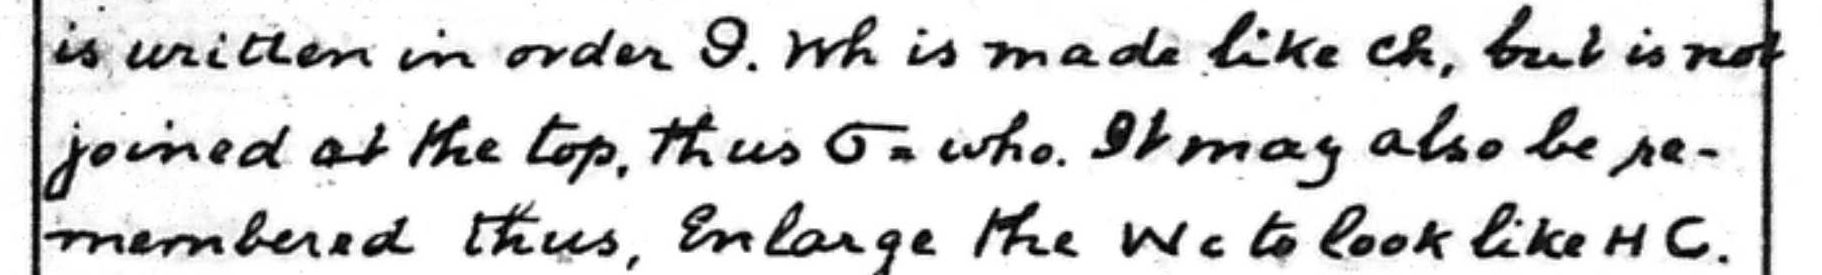 is written in order 9. Wh is made like ch, but is not
joined at the top, thus σ = who. It may also be re-
membered thus, Enlarge the W c to look like H C.